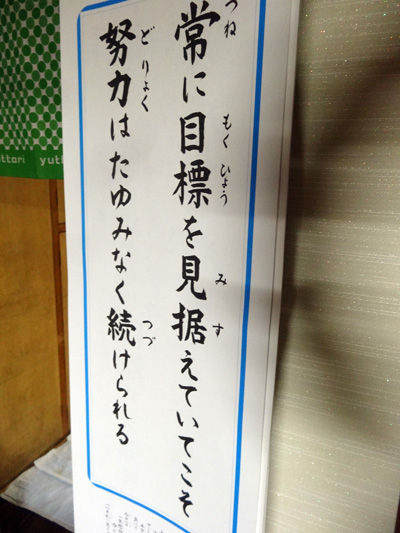 常に目標を見据えていてこそ
努力はたゆみなく続けられる
つね
もくひょう
みす
どりょく
つづ
yuttari